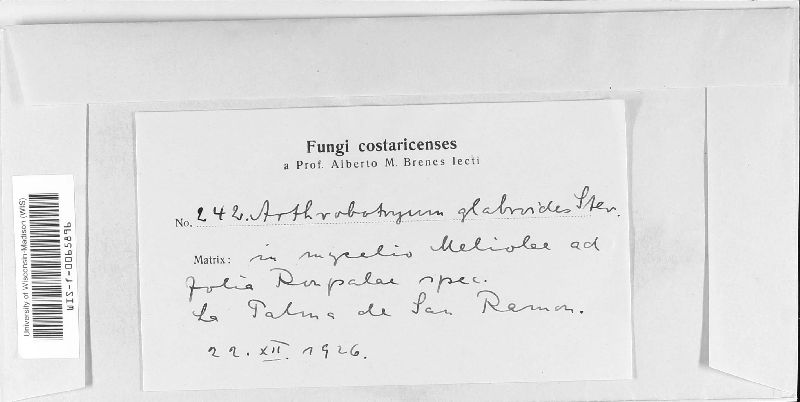 Fungi costaricenses
a Prof. Alberto M. Brenes lecti
No. 242. Arthrobotryum glabroides Stev.
Matrix: in mycelio Meliolae ad
folia Roupalae spec.
La Palma de San Ramon.
22. XII. 1926.
University of Wisconsin-Madison (WIS)
WIS-f-0065896